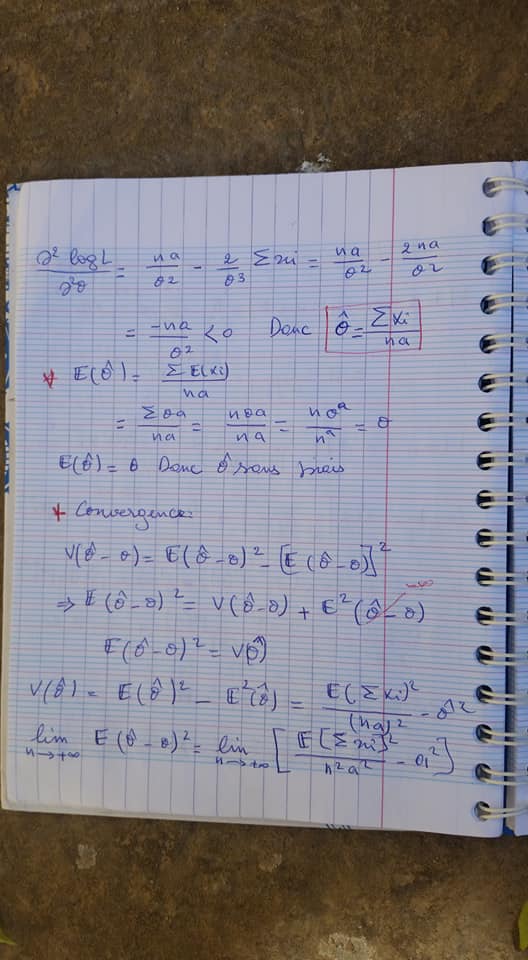 ∂² log L / ∂²θ = na/θ² - 2/θ³ Σxi = na/θ² - 2na/θ²
= -na/θ² < 0 Donc θ̂ = ΣXi/na
* E(θ̂) = ΣE(Xi)/na
= Σθa/na = nθa/na = nθa/na = θ
E(θ̂) = θ Donc θ̂ sans biais
* Convergence:
V(θ̂-θ) = E(θ̂-θ)² - [E(θ̂-θ)]²
⇒ E(θ̂-θ)² = V(θ̂-θ) + E²(θ̂-θ)
E(θ̂-θ)² = V(θ̂)
V(θ̂) = E(θ̂)² - E²(θ̂) = E(ΣXi)²/(na)² - θ̂²
lim n→+∞ E(θ̂-θ)² = lim n→+∞ [E[Σxi]²/n²a² - θ²]